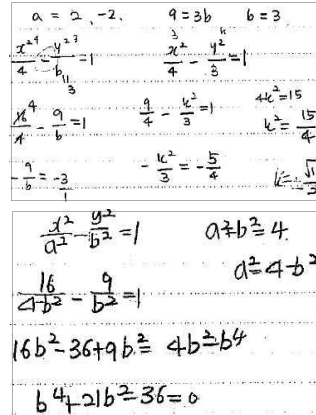 a = 2, -2. 9 = 3b b = 3
x²/4 - y²/b = 1 x²/4 - y²/3 = 1
16/4 - 9/b = 1 9/4 - k²/3 = 1 4k² = 15
k² = 15/4
-9/b = -3/1 -k²/3 = -5/4
x²/a² - y²/b² = 1 a²+b² = 4
a² = 4-b²
16/4-b² - 9/b² = 1
16b²-36+9b² = 4b²-b⁴
b⁴+21b²-36=0